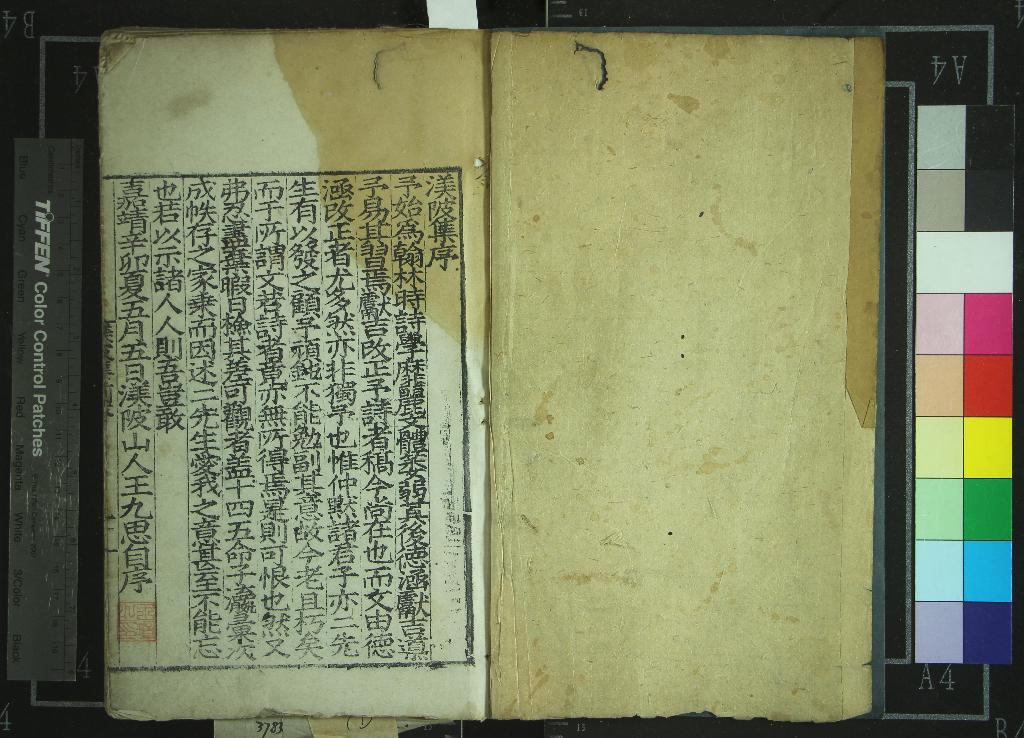 渼陂集序
予始為翰林時詩學靡麗文體萎弱其後德涵獻吉導
予易其習焉獻吉改正予詩者稿今尚在也而文由德
涵改正者尤多然亦非獨予也惟仲默諸君子亦二先
生有以發之顧予頑鈍不能勉副其意故今老且朽矣
而于所謂文若詩者竟亦無所得焉是則可恨也然又
弗忍盡棄暇日檢其差可觀者蓋十四五命子瀛彙次
成帙存之家乘而因述二先生愛我之意甚至不能忘
也若以示諸人人則吾豈敢
嘉靖辛卯夏五月五日渼陂山人王九思自序
TIFFEN Color Control Patches
Blue Cyan Green Yellow Red Magenta White 3/Color Black
A4
A4
B4
3783